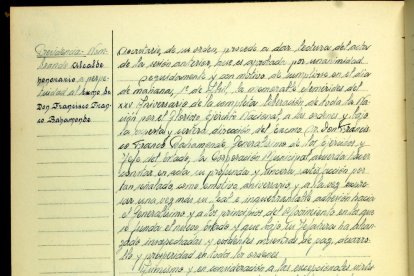 Presidencia.- Nom-
brando Alcalde
honorario a perpe-
tuidad al Excmo. Sr.
Don Francisco Fran-
co Bahamonde
Secretario, de su orden, procedo a dar lectura del acta
de la sesión anterior, que es aprobada por unanimidad.
Seguidamente y con motivo de cumplirse en el día
de mañana, 1º de Abril, la memorable efemérides del
XXV Aniversario de la completa liberación de toda la Na-
ción por el Glorioso Ejército Nacional, a las órdenes y bajo
la experta y certera dirección del Excmo. Sr. Don Francis-
co Franco Bahamonde, Generalísimo de los Ejércitos y
Jefe del Estado, la Corporación Municipal acuerda hacer
constar en acta su profunda y sincera satisfacción por
tan señalado como emotivo aniversario, y a la vez expre-
sar una vez más su leal e inquebrantable adhesión hacia
el Generalísimo y a los principios del Movimiento en los que
se funda el nuevo Estado y que bajo su Jefatura ha alcan-
zado insospechadas y patentes de paz, desarro-
llo y prosperidad en todos los órdenes.
Asimismo y en consideración a las excepcionales